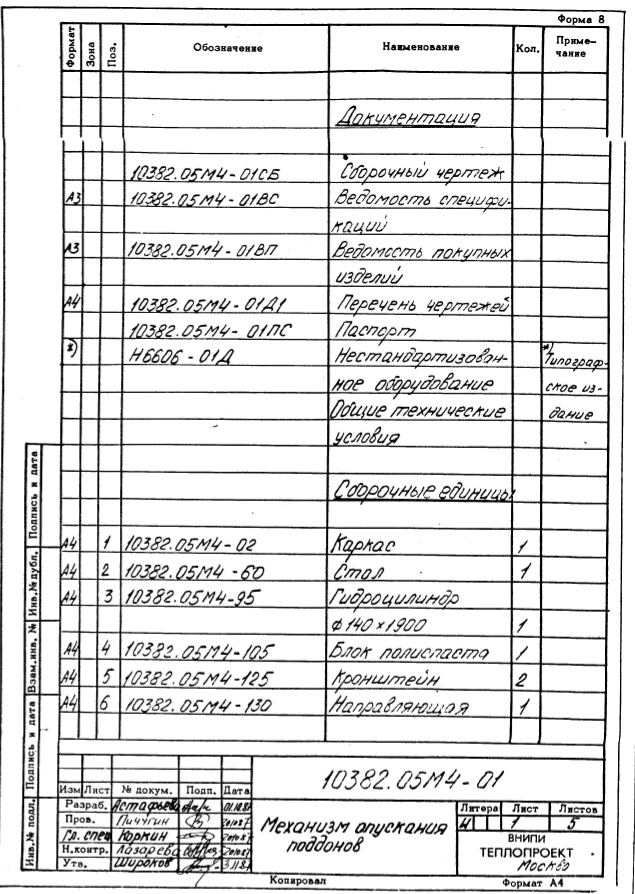 Форма 8
Формат Зона Поз. Обозначение Наименование Кол. Приме-
чание
Документация
10382.05М4-01СБ Сборочный чертеж
А3 10382.05М4-01ВС Ведомость специфи-
каций
А3 10382.05М4-01ВП Ведомость покупных
изделий
А4 10382.05М4-01Д1 Перечень чертежей
10382.05М4-01ПС Паспорт
*) Н6606-01Д Нестандартизован- *) Типограф-
ное оборудование ское из-
Общие технические дание
условия
Сборочные единицы
А4 1 10382.05М4-02 Каркас 1
А4 2 10382.05М4-60 Стол 1
А4 3 10382.05М4-95 Гидроцилиндр
ф140×1900 1
А4 4 10382.05М4-105 Блок полиспаста 1
А4 5 10382.05М4-125 Кронштейн 2
А4 6 10382.05М4-130 Направляющая 1
Инв.№ подл. Подпись и дата Взам.инв. № Инв.№ дубл. Подпись и дата
10382.05М4-01
Изм Лист № докум. Подп. Дата
Разраб. Астафьева
Пров. Пичугин
Гл. спец Коркин
Н.контр. Лазарева
Утв. Широков
Механизм опускания
поддонов
Литера Лист Листов
И 1 5
ВНИПИ
ТЕПЛОПРОЕКТ
Москва
Копировал Формат А4